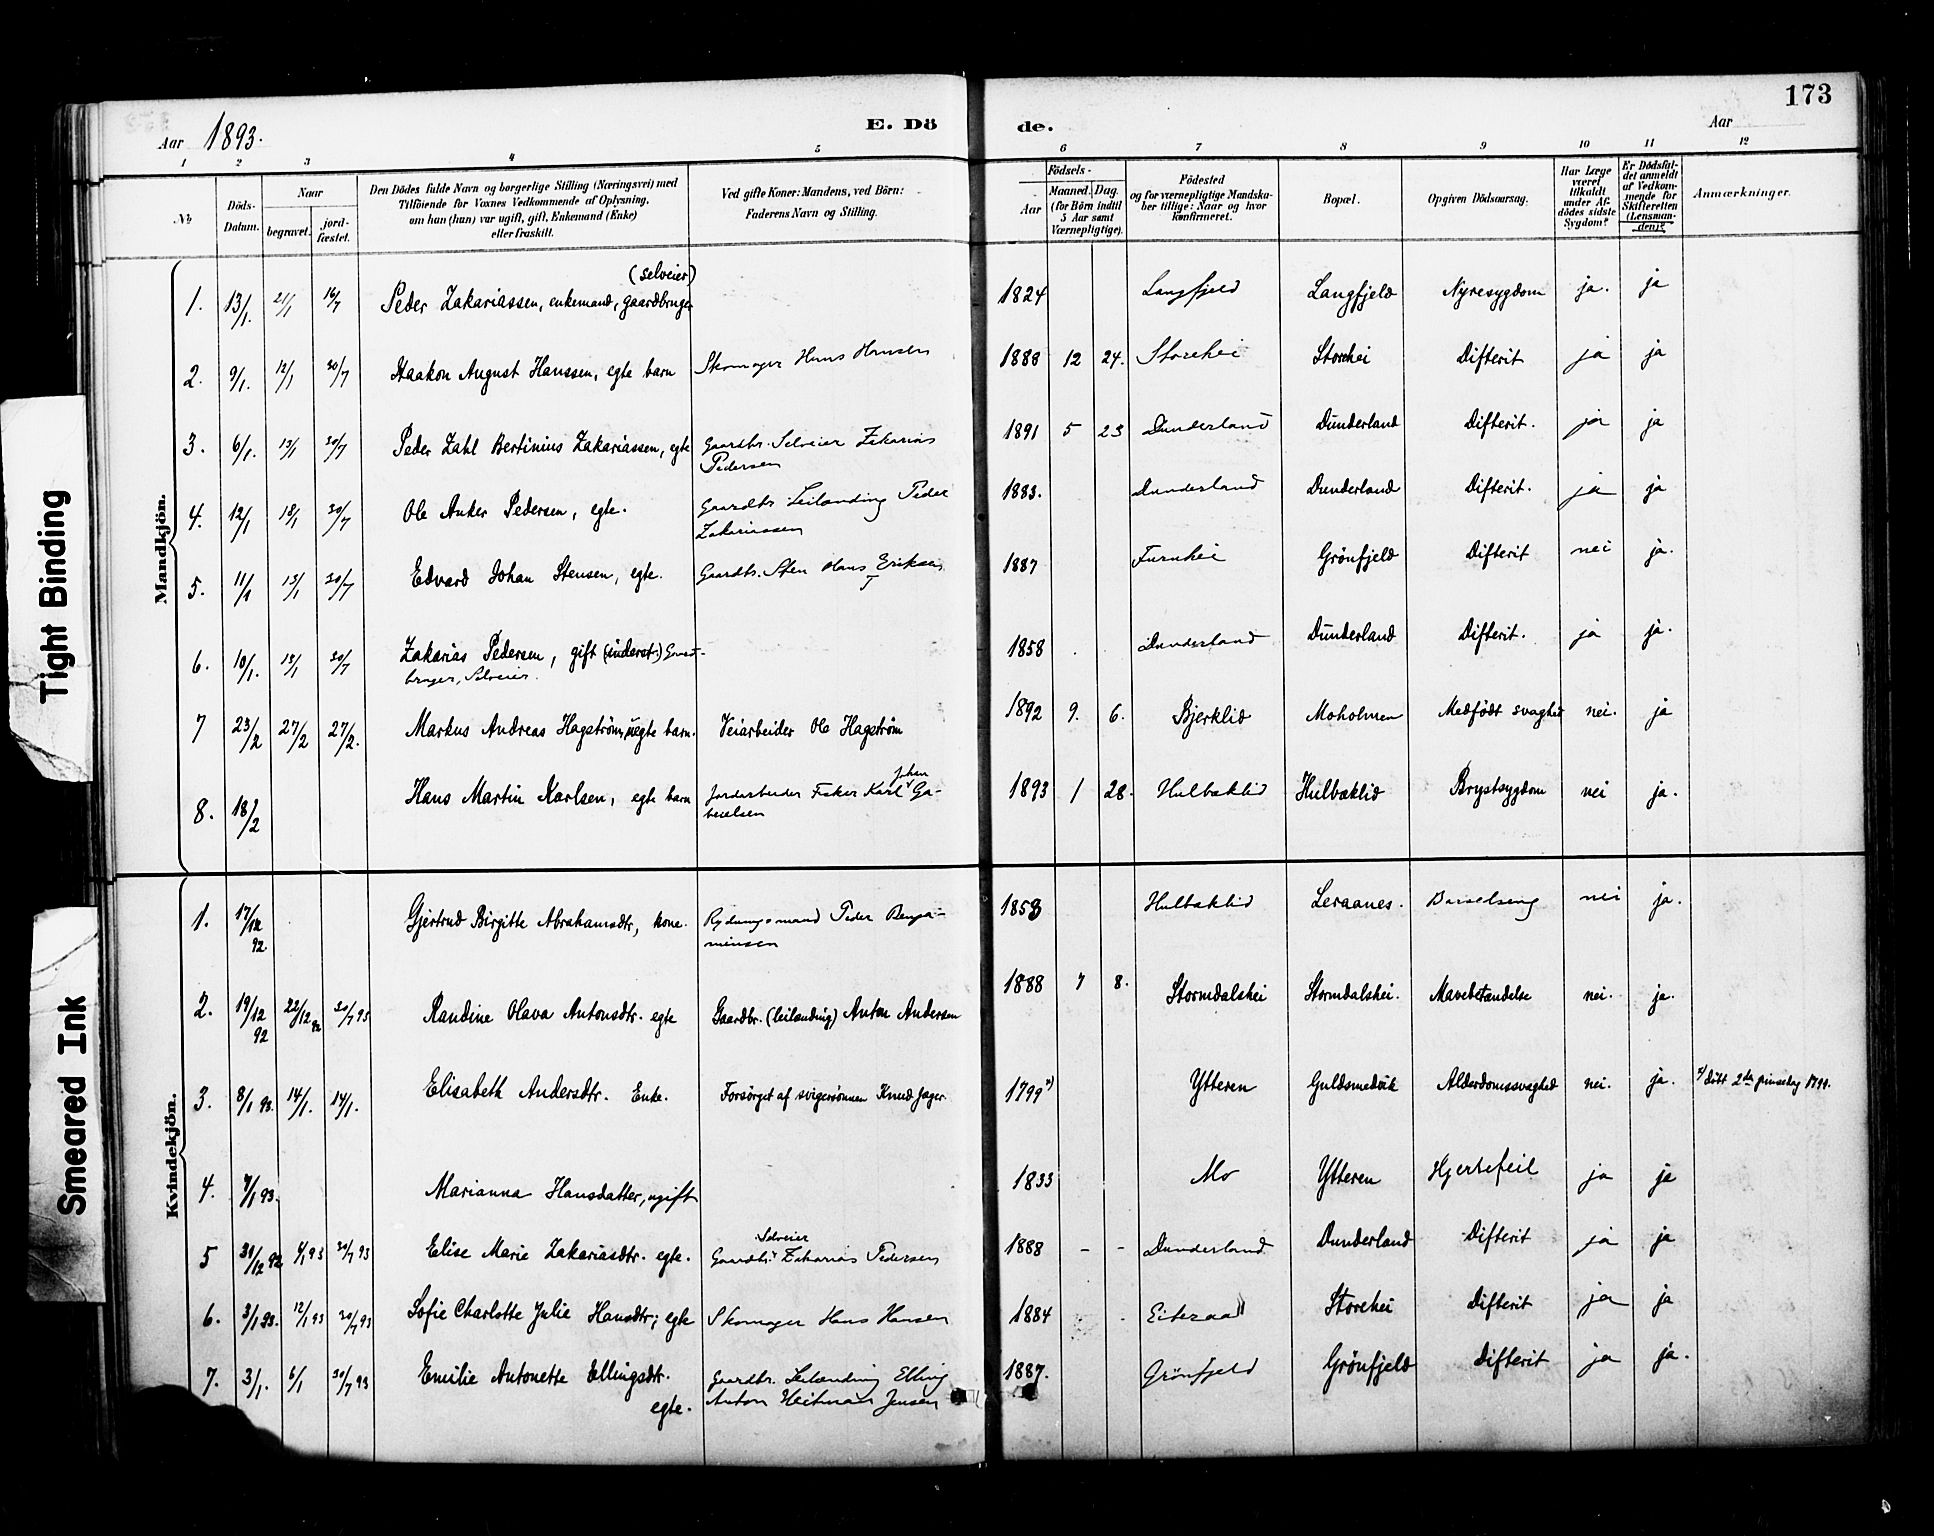 173
Aar 1893.
E. Dö de.
Aar
1 2 3 4 5 6 7 8 9 10 11 12
No
Döds-Datum.
Naar
begravet.
jord-fæstet.
Den Dödes fulde Navn og borgerlige Stilling (Næringsvei) med
Tilföiende for Voxnes Vedkommende af Oplysning,
om han (hun) var ugift, gift, Enkemand (Enke)
eller fraskilt.
Ved gifte Koner: Mandens, ved Börn:
Faderens Navn og Stilling.
Födsels-
Aar
Maaned. Dag.
(for Börn indtil
5 Aar samt
Værnepligtige).
Födested
og for værnepligtige Mandska-
ber tillige: Naar og hvor
konfirmeret.
Bopæl.
Opgiven Dödsaarsag.
Har Læge
været
tilkaldt
under Af-
dödes sidste
Sygdom?
Er Dödsfal-
det anmeldt
af Vedkom-
mende for
Skifteretten
(Lensman-
den)?
Anmærkninger.
Mandkjön.
(selveier)
1. 13/1. 21/1 16/7 Peder Zakariassen, enkemand, gaardbruger 1824 Langfjeld Langfjeld Nyresygdom ja. ja
2. 9/1. 12/1 30/7 Haakon August Hanssen, egte barn Skomager Hans Hansen 1888 12 24. Storehei Storehei Difterit ja ja
3. 6/1. 13/1 30/7 Peder Zahl Bertinius Zakariassen, egte Gaardbr. Selveier Zakarias 1891 5 23 Dunderland Dunderland Difterit. ja ja
Pedersen
4. 12/1 18/1 30/7 Ole Anker Pedersen, egte. Gaardbr. Leilænding Peder 1883. Dunderland Dunderland Difterit. ja ja
Zakariassen
5. 11/1 13/1 30/7 Edvard Johan Stensen, egte. Gaardbr. Sten Hans Eriksen 1887 Furuhei Grönfjeld Difterit nei ja.
6. 10/1. 13/1 30/7 Zakarias Pedersen, gift (inderst.) Gaard- 1858 Dunderland Dunderland Difterit. ja ja.
bruger, Selveier.
7 23/2 27/2 27/2. Markus Andreas Hagström, uegte barn. Veiarbeider Ole Hagström 1892 9. 6. Bjerklid Moholmen Medfödt svaghed nei. ja
Johan
8. 18/2 Hans Martin Karlsen, egte barn Jordarbeider Fisker Karl Ga- 1893 1 28. Hulbæklid Hulbæklid Brystsygdom nei ja.
brielsen
Kvindekjön.
1. 17/12 92. Gjertrud Birgitte Abrahamsdtr, kone. Rydningsmand Peder Benja- 1858 Hulbæklid Leraanes. Barselseng nei ja.
minsen
2. 19/12 92 22/12 92 30/7 93 Randine Olava Antonsdtr. egte Gaardbr. (leilænding) Anton Andersen 1888 7 8. Stormdalshei Stormdalshei. Mavebetændelse nei. ja.
3. 8/1 93. 14/1. 14/1. Elisabeth Andersdtr. Enke. Forsörget af svigersönnen Knud Jager. 1799 x) Ytteren Guldsmedvik Alderdomssvaghed nei. ja. x) döbt 2den pinsedag 1799.
4. 7/1 93. Marianna Hansdatter, ugift 1833 Mo Ytteren Hjertefeil ja ja
Selveier
5 31/12 92 4/1 93 30/7 93 Elise Marie Zakariasdtr. egte. Gaardbr. Zakarias Pedersen 1888 - - Dunderland Dunderland Difterit ja ja
6. 3/1 93. 12/1 93 30/7 93 Sofie Charlotte Julie Hansdtr; egte Skomager Hans Hansen 1884 Eiteraa Storehei Difterit ja ja
7. 3/1. 6/1 30/7 93 Emilie Antonette Ellingsdtr. Gaardbr. Leilænding Elling 1887. Grönfjeld Grönfjeld Difterit ja ja.
egte. Anton Heitman Jensen
Tight Binding
Smeared Ink